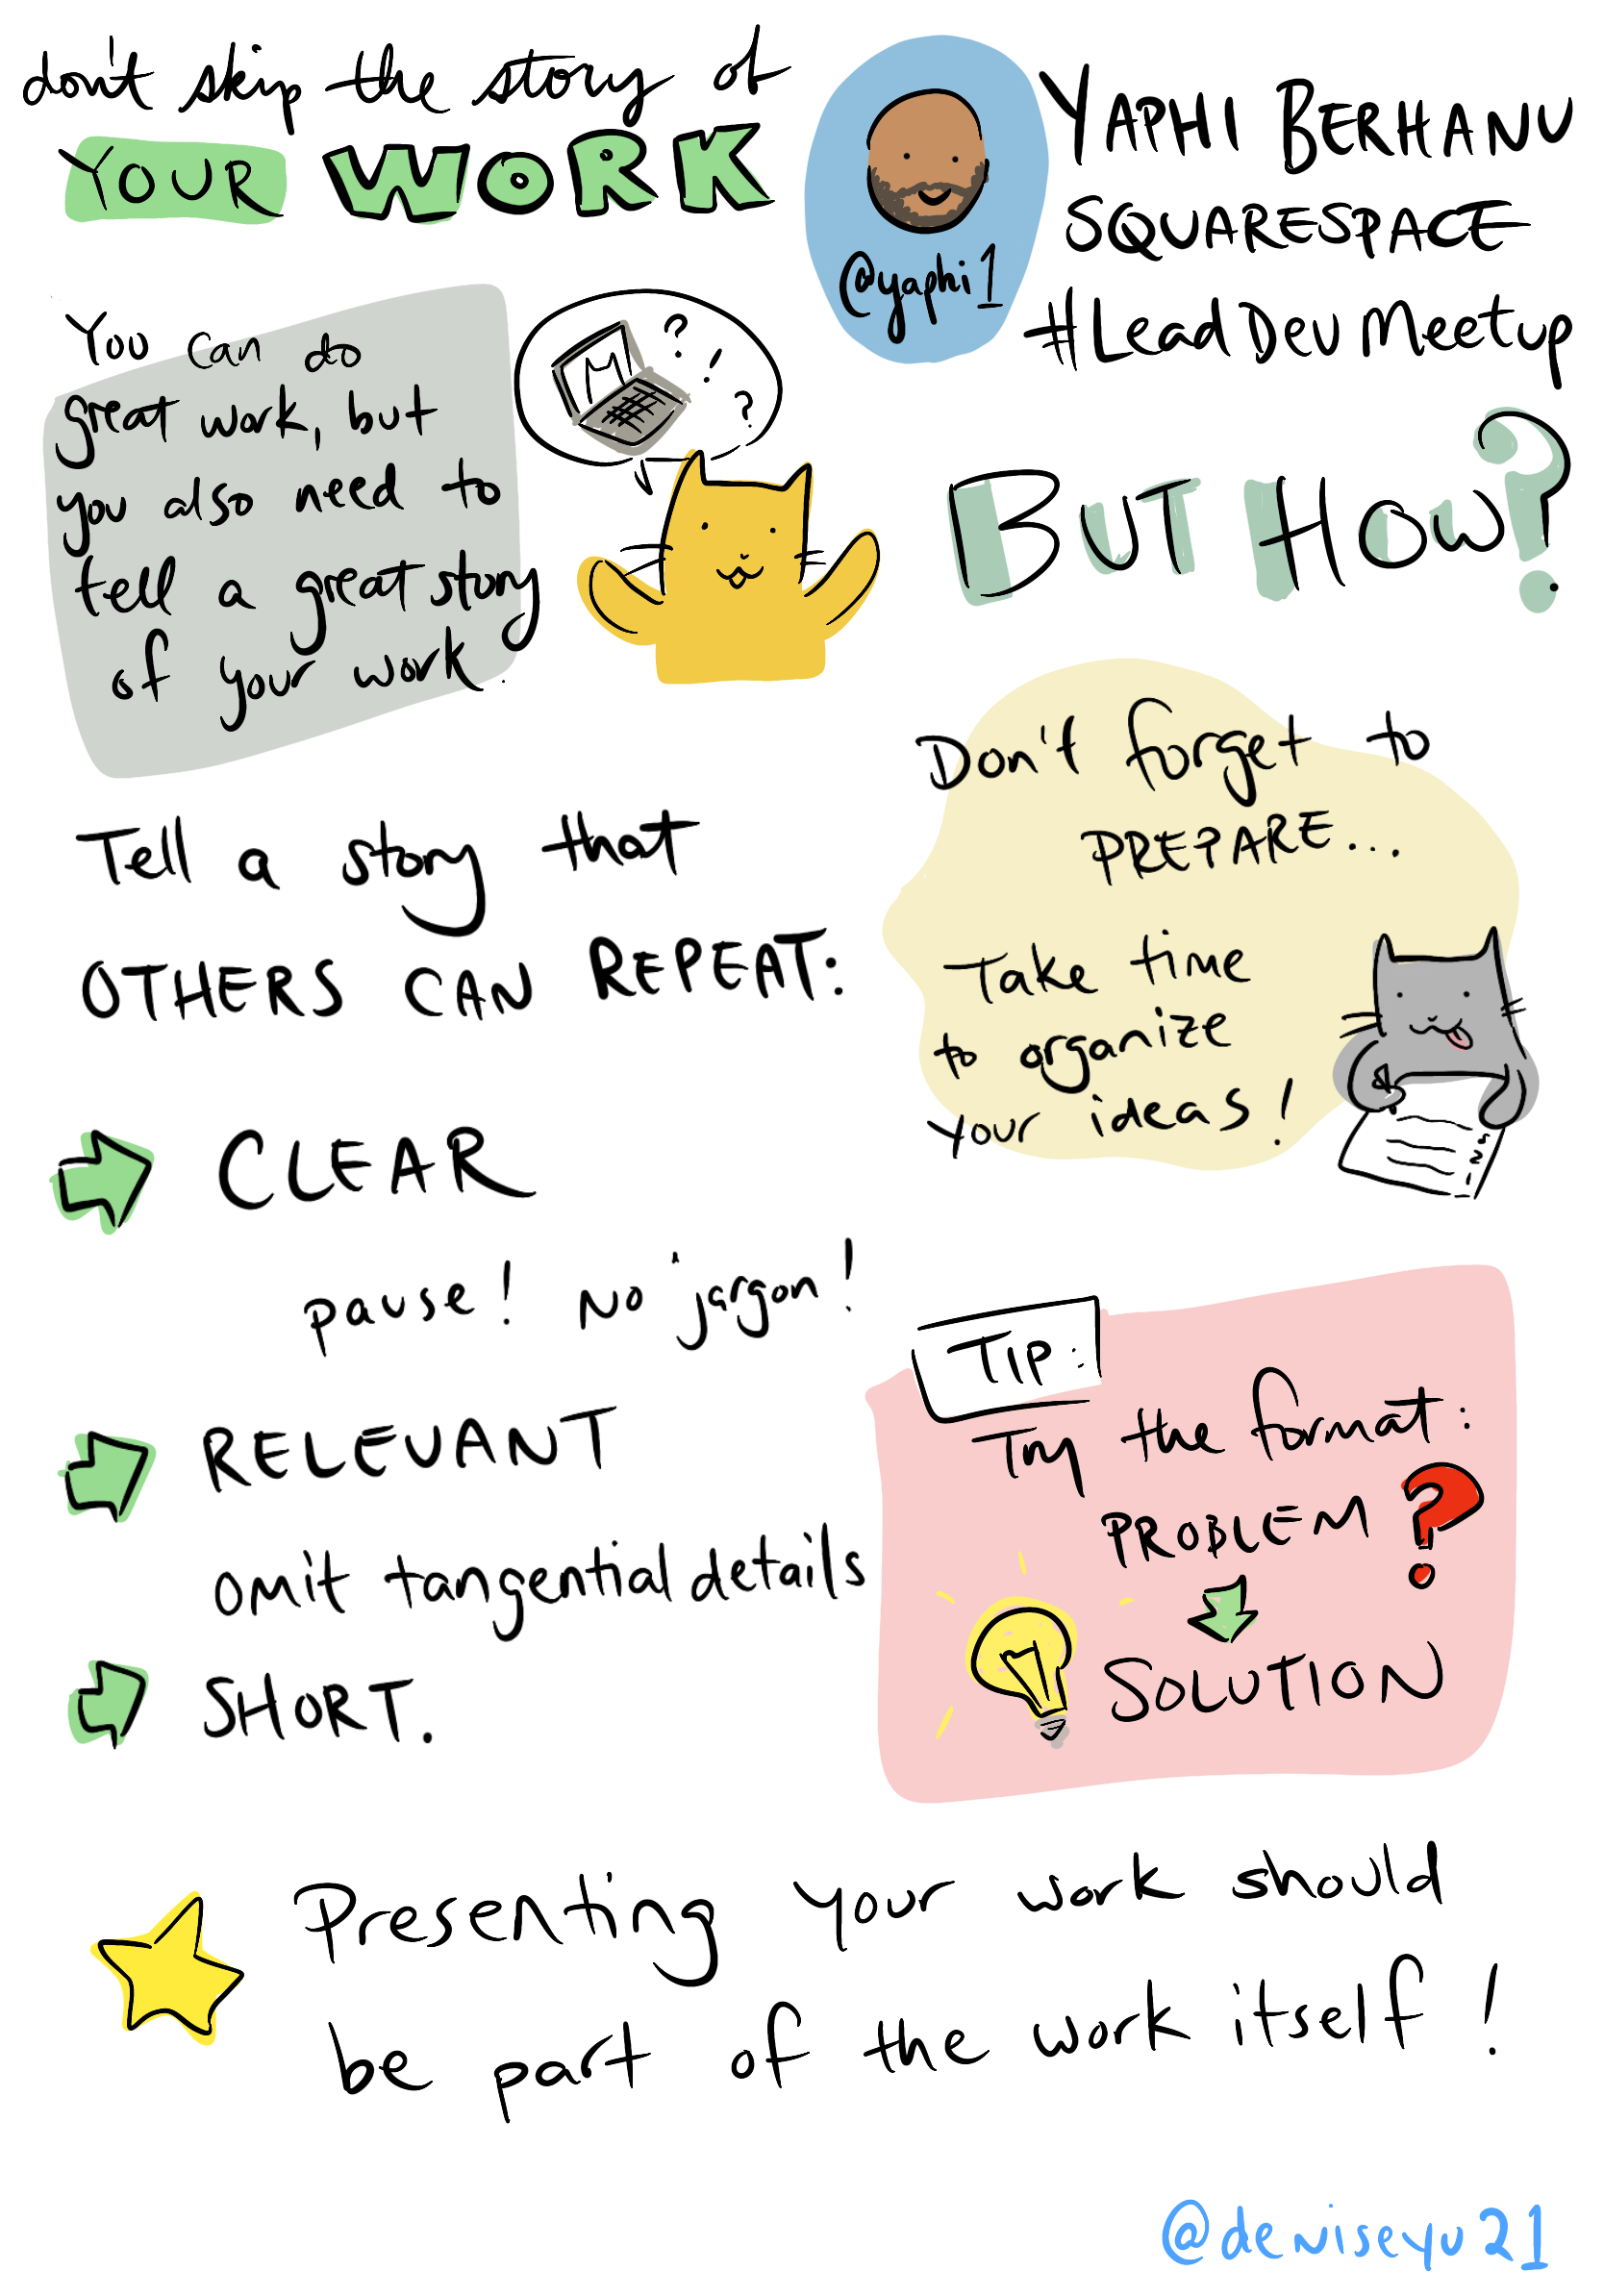 don't skip the story of
YOUR WORK
@yaphi1
YAPHI BERHANU
SQUARESPACE
#LeadDevMeetup
You can do
great work, but
you also need to
tell a great story
of your work.
? ! ?
BUT HOW?
Don't forget to
PREPARE...
Take time
to organize
your ideas!
1
2
3
Tell a story that
OTHERS CAN REPEAT:
CLEAR
pause! No jargon!
RELEVANT
omit tangential details
SHORT.
TIP:
Try the format:
PROBLEM ?
SOLUTION
Presenting your work should
be part of the work itself!
@deniseyu21